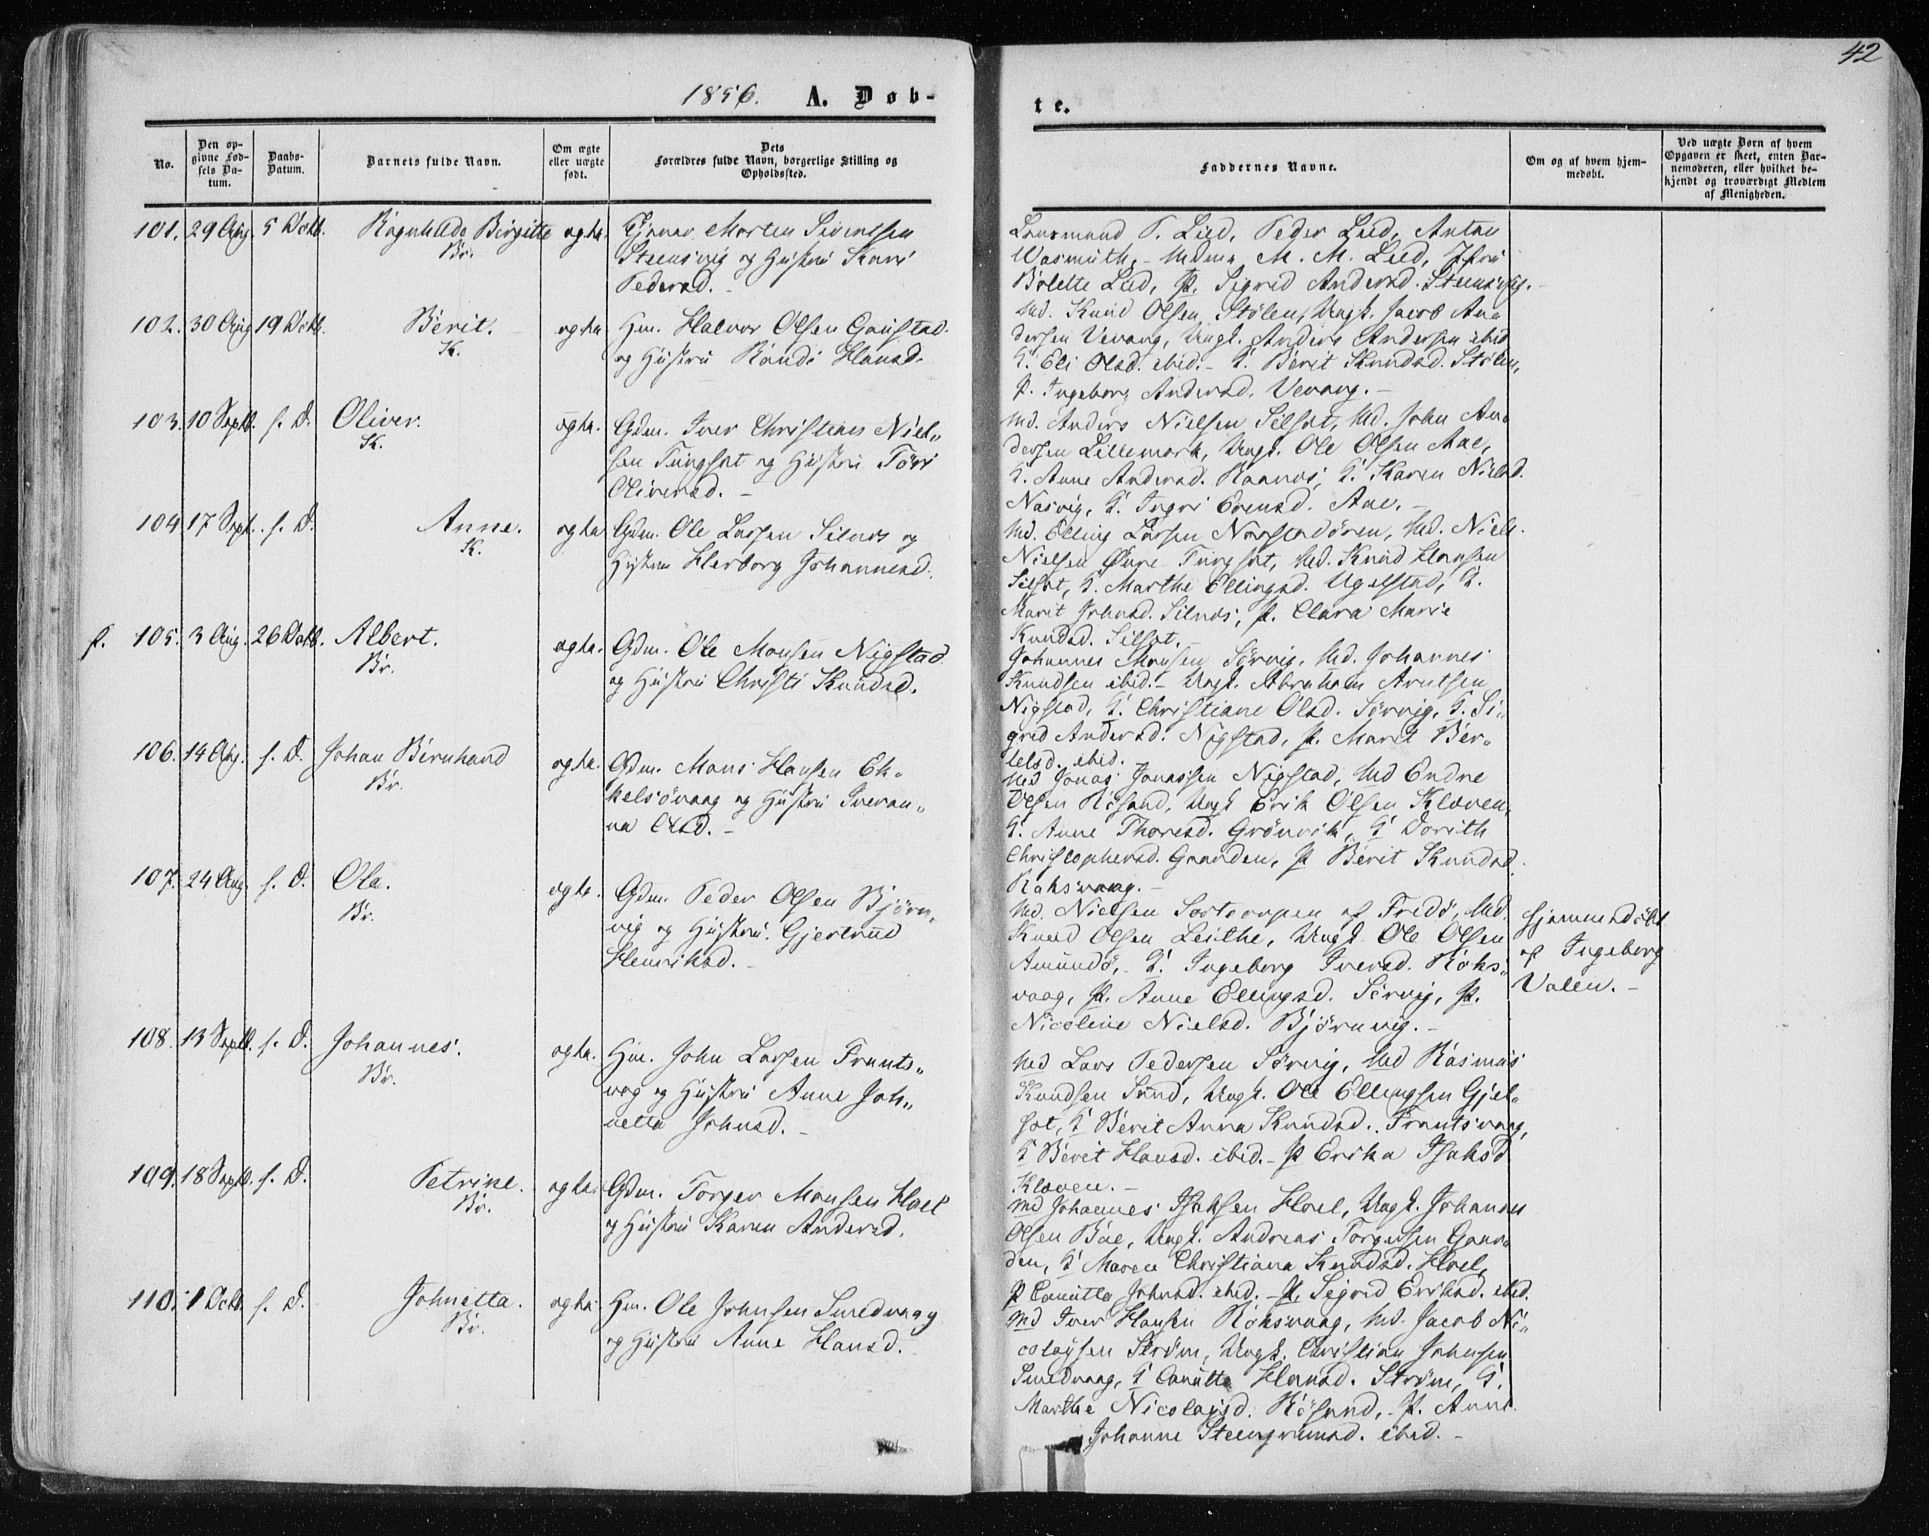 42
1856. A. Døb-
te.
No.
Den opgivne Fødsels Datum.
Daabs-Datum.
Barnets fulde Navn.
Om ægte eller uægte født.
Dets Forældres fulde Navn, borgerlige Stilling og Opholdssted.
Faddernes Navne.
Om og af hvem hjemmedøbt.
Ved uægte Børn af hvem Opgaven er skeet, enten Barnemoderen, eller hvilket bekjendt og troværdigt Medlem af Menigheden.
101. 29 Aug. 5 Octb. Ragnhilde Birgitte ægte.
Br.
Morten Sivertsen
Steensvig og Hustru Kari
Pedersd. -
Lensmand P. Lied, Peder Lied, Anton
Wasmuth, Madme M. M. Lied, Jfru
Bolette Lied, P. Sigrid Andersd. Steensvig. -
102. 30 Aug. 19 Octb. Berit. ægte
K.
Hm. Halvor Olsen Gaustad
og Hustru Randi Hansd.
Md. Knud Olsen Stølen, Ungk. Jacob An-
dersen Vevang, Ungk. Anders Andersen ibid
G. Eli Olsd. ibid. - G. Berit Knudsd. Stølen,
P. Ingeborg Andersd. Vevang. -
103. 10 Septb. s. D. Oliver. ægte.
K.
Gdm. Iver Christian Niel-
sen Tungsæt og Hustru
Oliversd. -
Md. Anders Nielsen Silsæt, Md. John An-
dersen Lillemork, Ungk. Ole Olsen Aae,
G. Anne Andersd. Raanes, G. Karen Nielsd.
Nasvig, G. Ingri Evensd. Aae. -
104 17 Sept. s. D. Anne. ægte
K.
Gdm. Ole Larsen Silnes og
Hustru Herborg Johannesd.
Md. Elling Larsen Naastadøren, Md. Niels
Nielsen Øvre Tungsæt, Md. Knud Hansen
Silsæt, G. Marthe Ellingsd. Ugelstad, G.
Marit Johnsd. Silnes, P. Clara Marie
Knudsd. Silsæt. -
f. 105. 3 Aug. 26 Octb. Albert. ægte.
Br.
Gdm. Ole Monsen Nigstad
og Hustru Christi Knudsd.
Johannes Monsen Sørvig, Md. Johannes
Knudsen ibid. - Ungk. Abraham Arntsen
Nigstad, G. Christiane Olsd. Sørvig, G. Si-
grid Andersd. Nigstad, P. Marit Ber-
telsd. ibid.
106. 14 Aug. s. D. Johan Bernhard ægte.
Br.
Gdm. Mons Hansen Ek-
kelsøvaag og Hustru Iveran-
na Olsd. -
Md Jonas Jonassen Nigstad, Md Endre
Olsen Røsand, Ungk Erik Olsen Kløven,
G. Anne Thoresd. Grønvik, G Dorith
Christophersd. Gaarden, P Berit Knudsd.
Røksvaag. -
107. 24 Aug. s. D. Ola. ægte.
Br.
Gdm. Peder Olsen Bjørn-
vig og Hustru Gjertrud
Henriksd. -
Md. Nielsen af Fredø, Md.
Knud Olsen Leithe, Ungk. Ole Olsen
Amundø, G. Ingeborg Iversd. Røks-
vaag, P. Anne Ellingsd. Sørvig, P.
Nicoline Nielsd. Bjørnvig. -
Hjemmedøbt
af Ingeborg
Valen. -
108. 13 Septb. s. D. Johannes. ægte.
Br.
Hm. John Larsen Frants-
vag og Hustru Anne Joh-
netta Johnsd. -
Md Lars Pedersen Sørvig, Md Rasmus
Knudsen Sund, Ungk. Ole Ellingsen Gjel-
sæt, G Berit Anna Knudsd. Frantsvaag,
G Berit Hansd. ibid. - P Erika Isaksd
Kløven. -
109. 18 Septb. s. D. Petrine. ægte
Br.
Gdm. Torger Monsen Hoel
og Hustru Karen Andersd.
Md Johannes Isaksen Hoel, Ungk. Johannes
Olsen Bøe, Ungk. Andreas Torgersen Gaar-
den, G Maren Christiana Knudsd. Hoel,
P Canutta Johnsd. ibid. - P. Sigrid Eriksd. ibid.
110. 1 Octb. s. D. Johnetta. ægte
Br.
Hm. Ole Johnsen Smedvaag
og Hustru Anne Hansd. -
Md Iver Hansen Røksvaag, Md. Jacob Ni-
colaysen Strøm, Ungk. Christian Johnsen
Smedvaag, G Canutta Hansd. Strøm, G.
Marthe Nicolaisd. Røsand, P. Anne
Johanne Steengrimsd. ibid. -